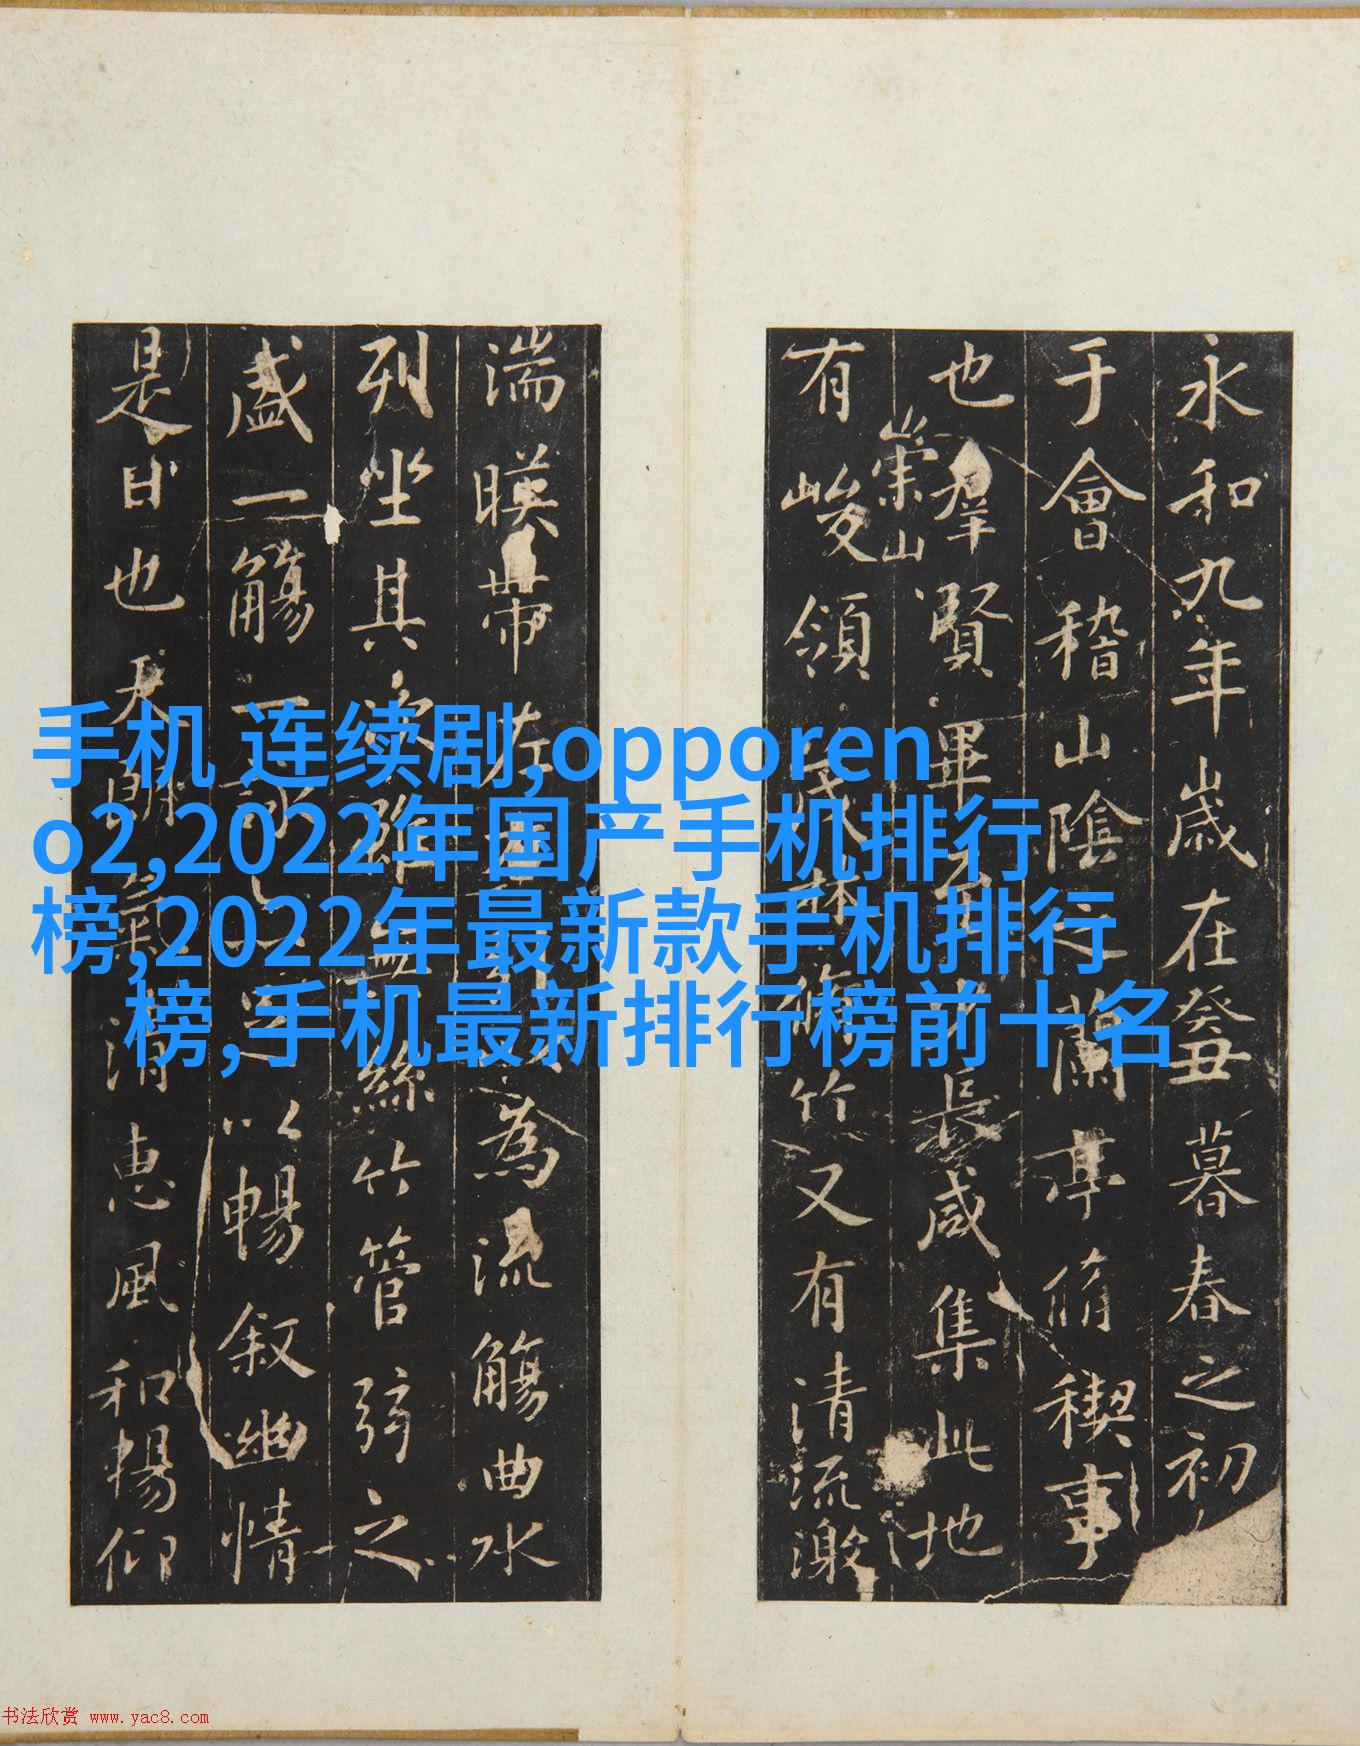 手机 连续剧,opporen
o2,2022年国产手机排行
榜,2022年最新款手机排行
榜,手机最新排行榜前十名
永和九年歲在癸丑暮春之初
于會稽山陰之蘭亭脩禊事
也群賢畢至少長咸集此地
崇山
有峻領茂林脩竹又有清流激
湍暎帶左右引以為流觴曲水
列坐其次雖無絲竹管弦之
盛一觴一詠亦足以暢叙幽情
是日也天朗氣清惠風和暢仰
书法欣赏 www.yac8.com